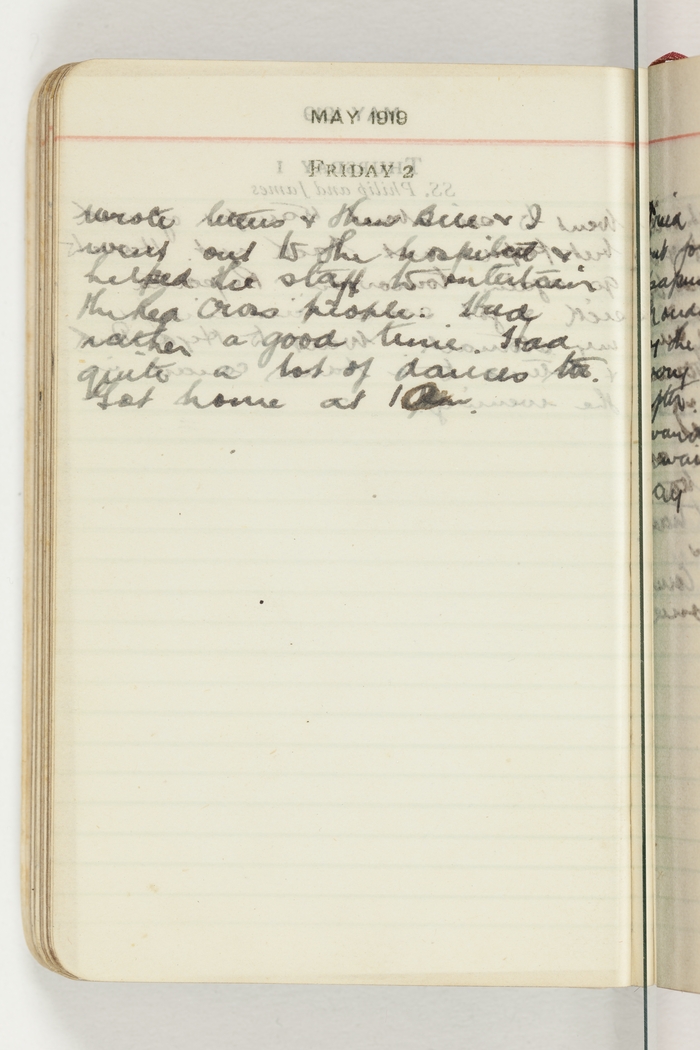 MAY 1919
FRIDAY 2
wrote letters & then Bill & I
went out to the hospital &
helped the staff to entertain
the Red Cross people. Had
rather a good time. Had
quite a lot of dances too.
Got home at 1 am.